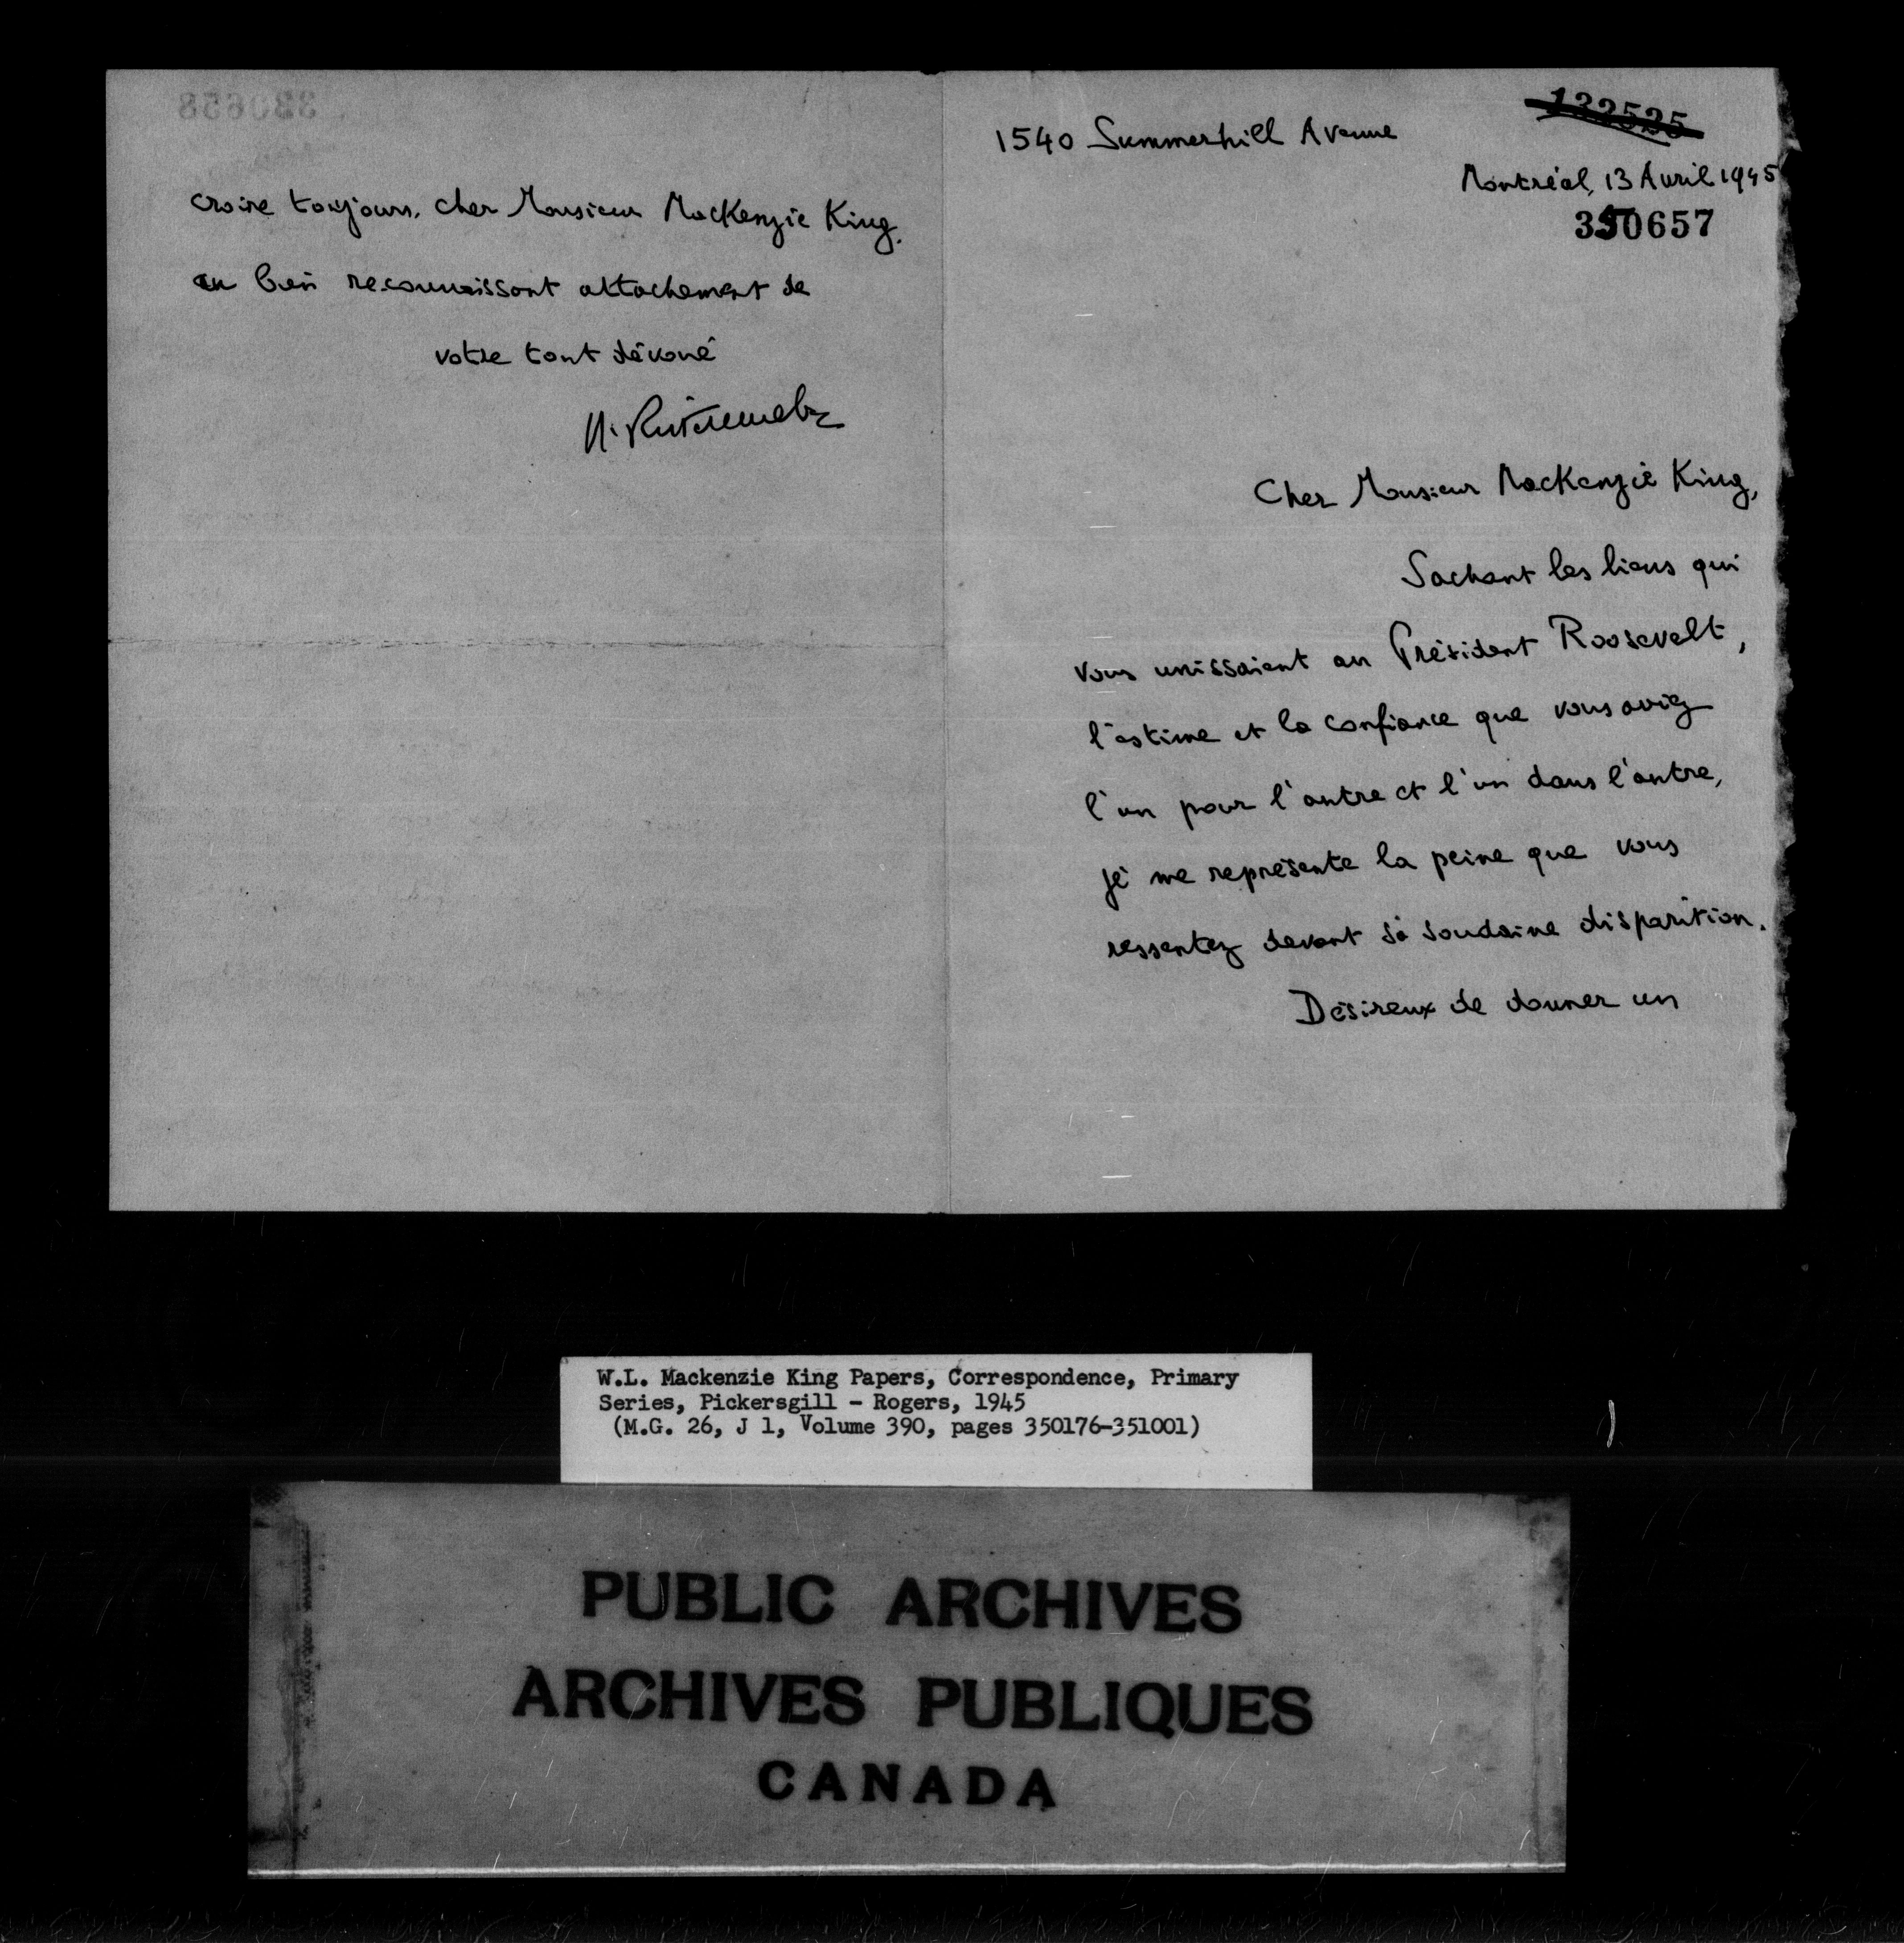 1540 Summerhill Avenue
132525
Montréal, 13 Avril 1945
350657
Cher Monsieur MacKenzie King,
Sachant les liens qui
vous unissaient au Président Roosevelt,
l'estime et la confiance que vous aviez
l'un pour l'autre et l'un dans l'autre,
je me représente la peine que vous
ressentez devant sa soudaine disparition.
Désireux de donner un
croire toujours, cher Monsieur MacKenzie King,
au bien reconnaissant attachement de
votre tout dévoué
W.L. Mackenzie King Papers, Correspondence, Primary
Series, Pickersgill - Rogers, 1945
(M.G. 26, J 1, Volume 390, pages 350176-351001)
PUBLIC ARCHIVES
ARCHIVES PUBLIQUES
CANADA